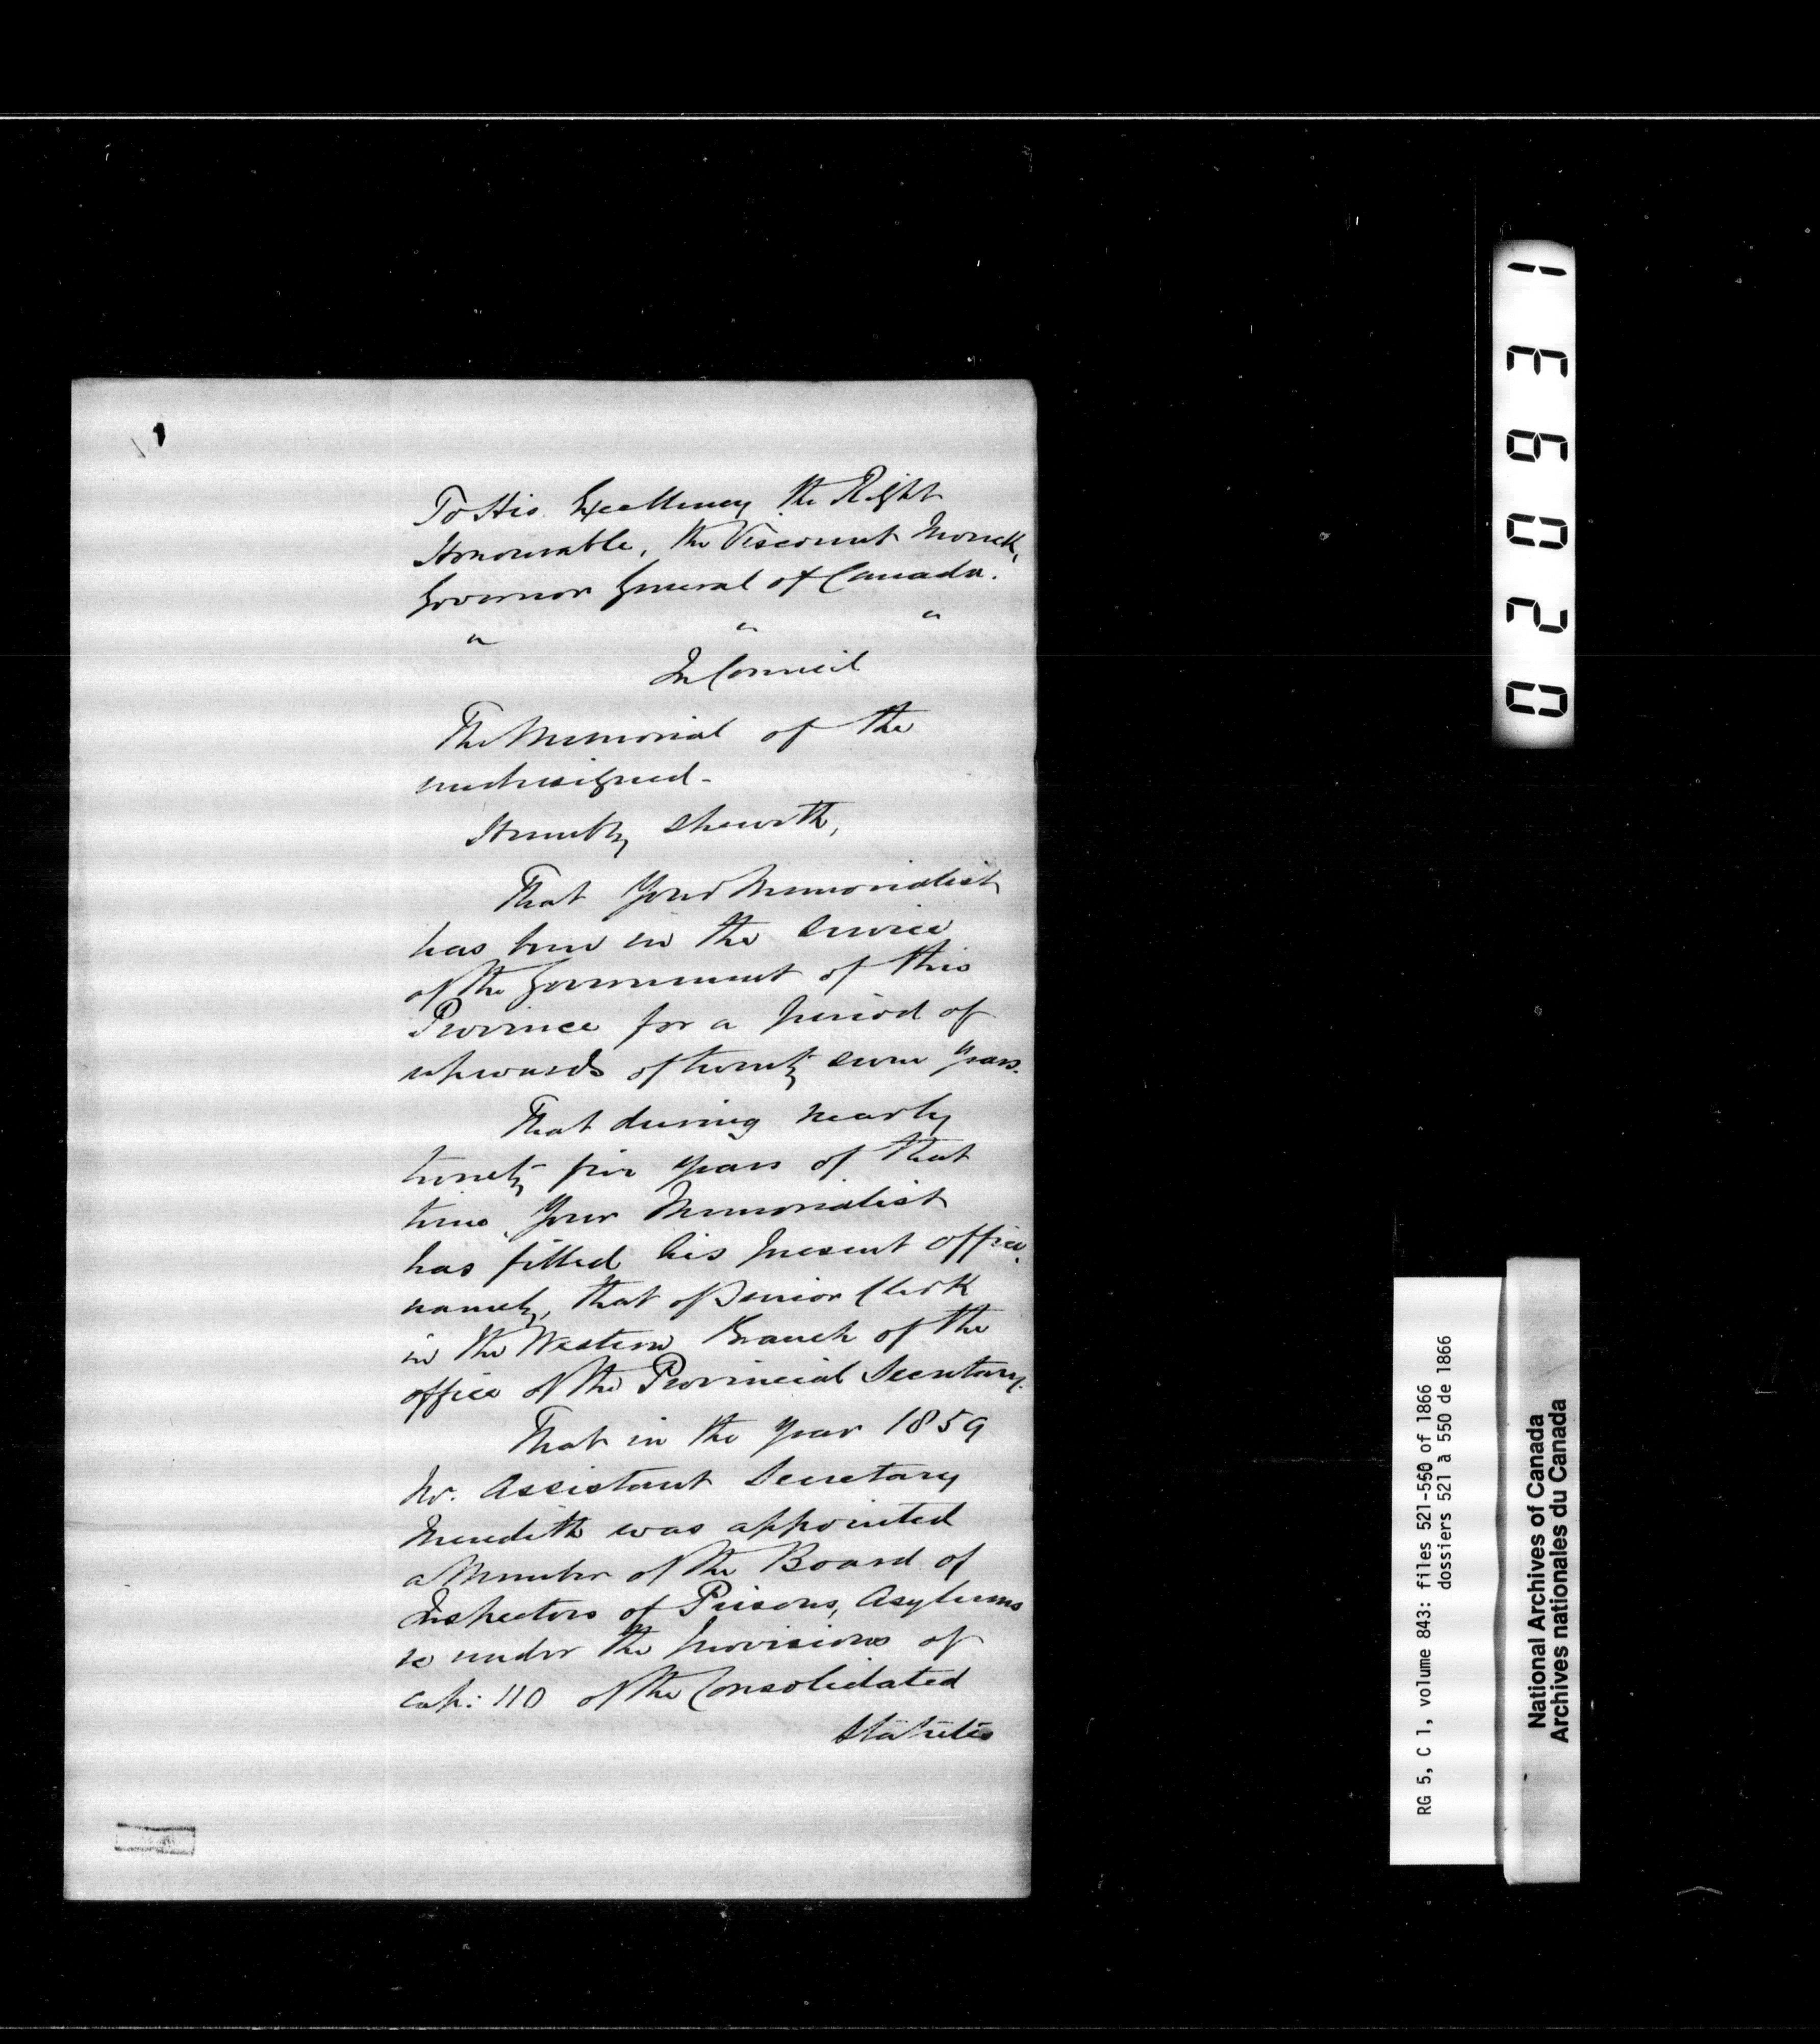 To His Excellency the Right
Honourable, the Viscount Monck,
Governor General of Canada.
" " "
In Council
The Memorial of the
undersigned -
Humbly sheweth,
That Your Memorialist
has been in the service
of the Government of this
Province for a period of
upwards of twenty seven years.
That during nearly
twenty five years of that
time, Your Memorialist
has filled his present office,
namely, that of Senior Clerk
in the Western Branch of the
office of the Provincial Secretary.
That in the year 1859
Mr. Assistant Secretary
Meredith was appointed
a Member of the Board of
Inspectors of Prisons, Asylums
&c under the provisions of
Cap: 110 of the Consolidated
Statutes
02093 1
RG 5, C 1, volume 843: files 521-550 of 1866
dossiers 521 à 550 de 1866
National Archives of Canada
Archives nationales du Canada